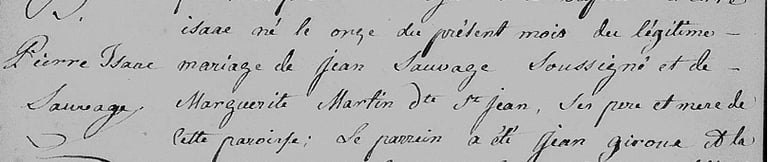 isaac né le onze du présent mois du légitime –
Pierre Isaac mariage de jean Sauvage Soussigné et de –
Sauvage Marguerite Martin dte St jean, Ses pere et mere de
Cette paroisse; Le parrein a été jean giroux et la